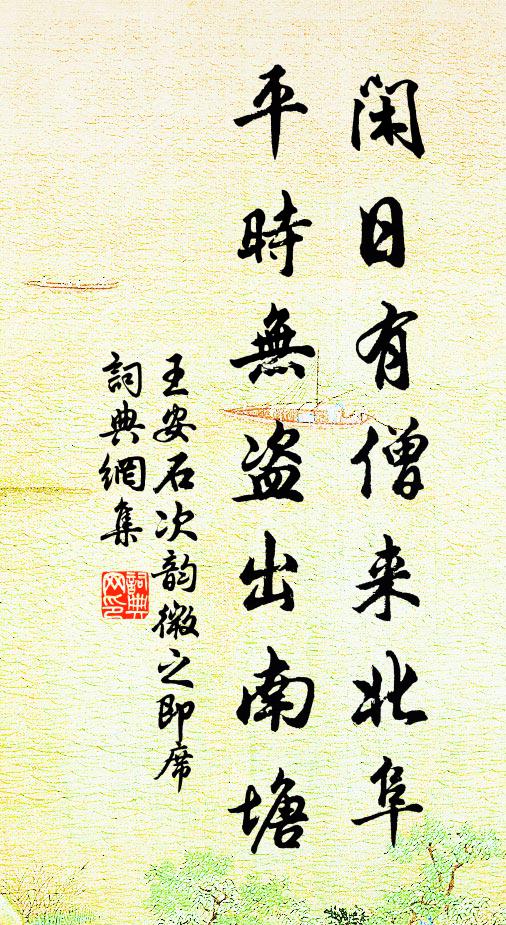 闲日有僧来北阜
平時無盗出南塘
王安石次韵微之即席
詞典網集
詞典网印